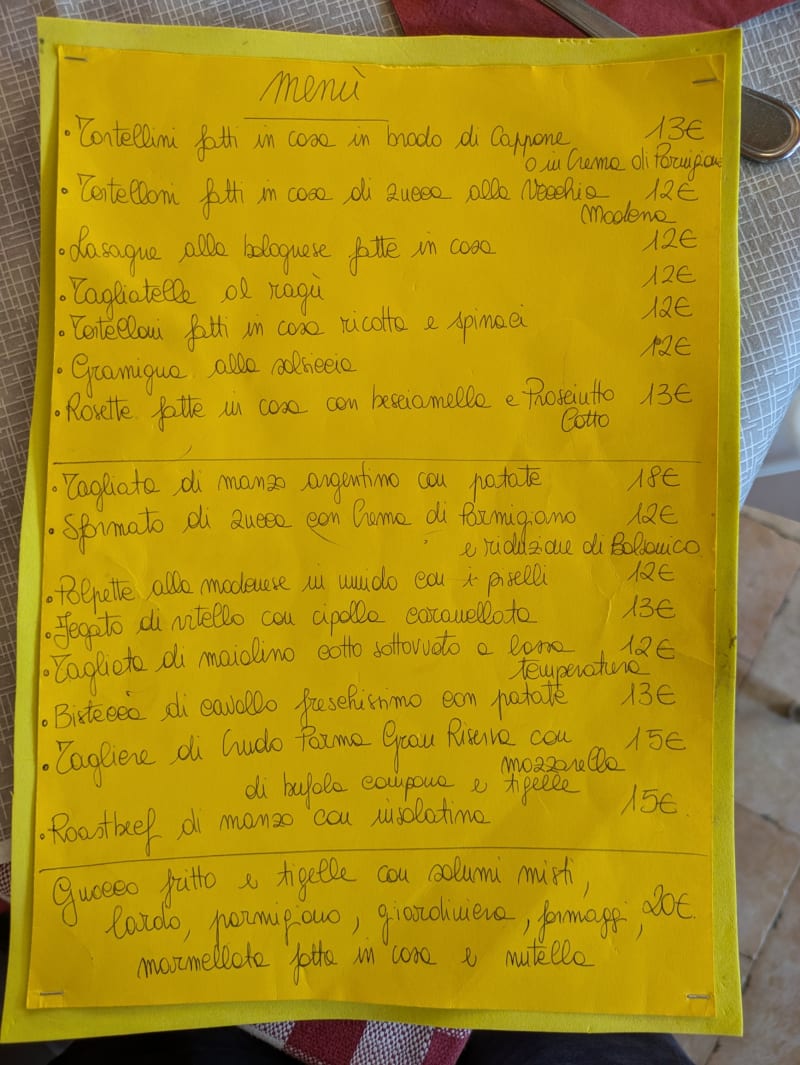 menù
• Tortellini fatti in casa in brodo di Cappone 13€
o in Crema di Parmigiano
• Tortelloni fatti in casa di zucca alla Vecchia 12€
Modena
• Lasagne alla bolognese fatte in casa 12€
• Tagliatelle al ragù 12€
• Tortelloni fatti in casa ricotta e spinaci 12€
• Gramigna alla salsiccia 12€
• Rosette fatte in casa con besciamella e Prosciutto 13€
Cotto
• Tagliata di manzo argentino con patate 18€
• Sformato di zucca con Crema di Parmigiano 12€
e riduzione di Balsamico
• Polpette alla modenese in umido con i piselli 12€
• Fegato di vitello con cipolla caramellata 13€
• Tagliata di maialino cotto sottovuoto a bassa 12€
temperatura
• Bistecca di cavallo freschissimo con patate 13€
• Tagliere di Crudo Parma Gran Riserva con 15€
mozzarella
di bufala campana e tigelle
• Roastbeef di manzo con insalatina 15€
Gnocco fritto e tigelle con salumi misti,
lardo, parmigiano, giardiniera, formaggi, 20€
marmellata fatta in casa e nutella